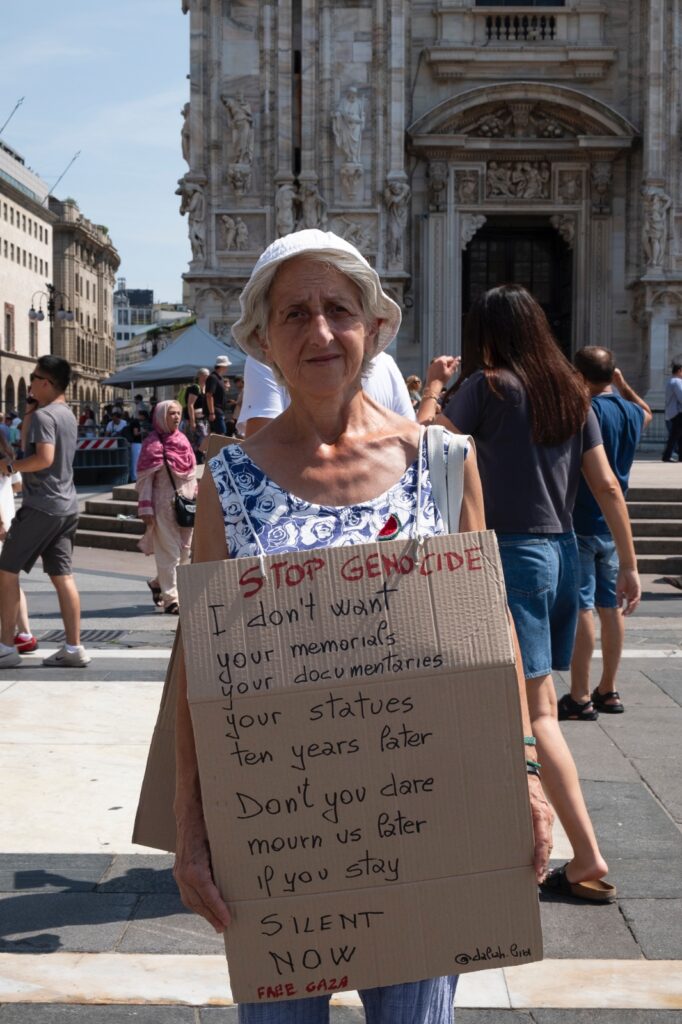 STOP GENOCIDE
I don't want
your memorials
your documentaries
your statues
ten years later
Don't you dare
mourn us later
if you stay
SILENT
NOW
FREE GAZA